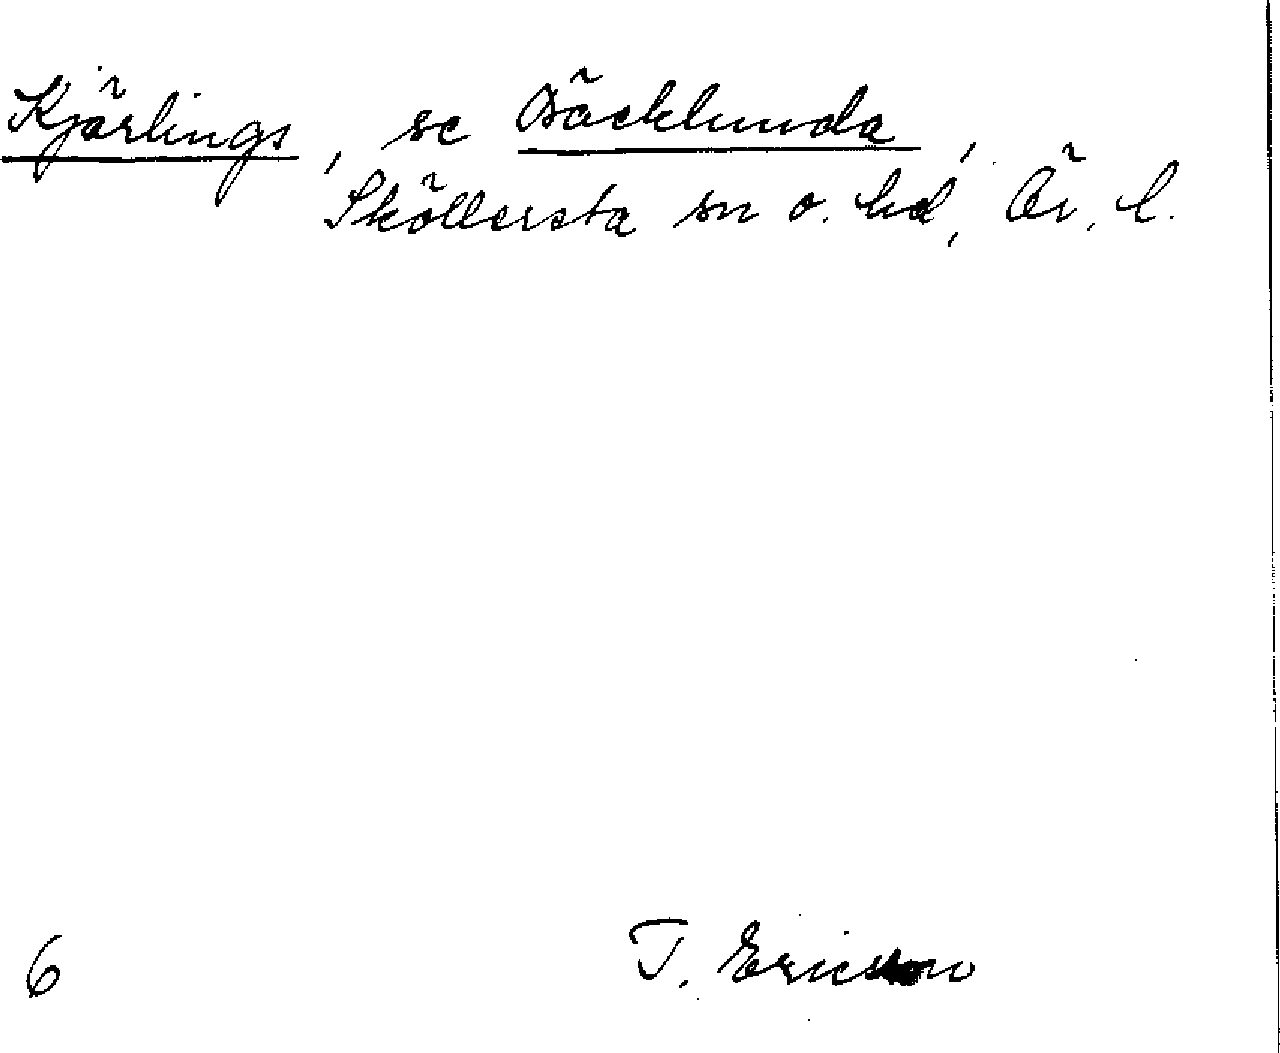 Kjärlings, se Bäcklunda,
Sköllersta sn o. hd, Ör. l.
6
T. Ericsson